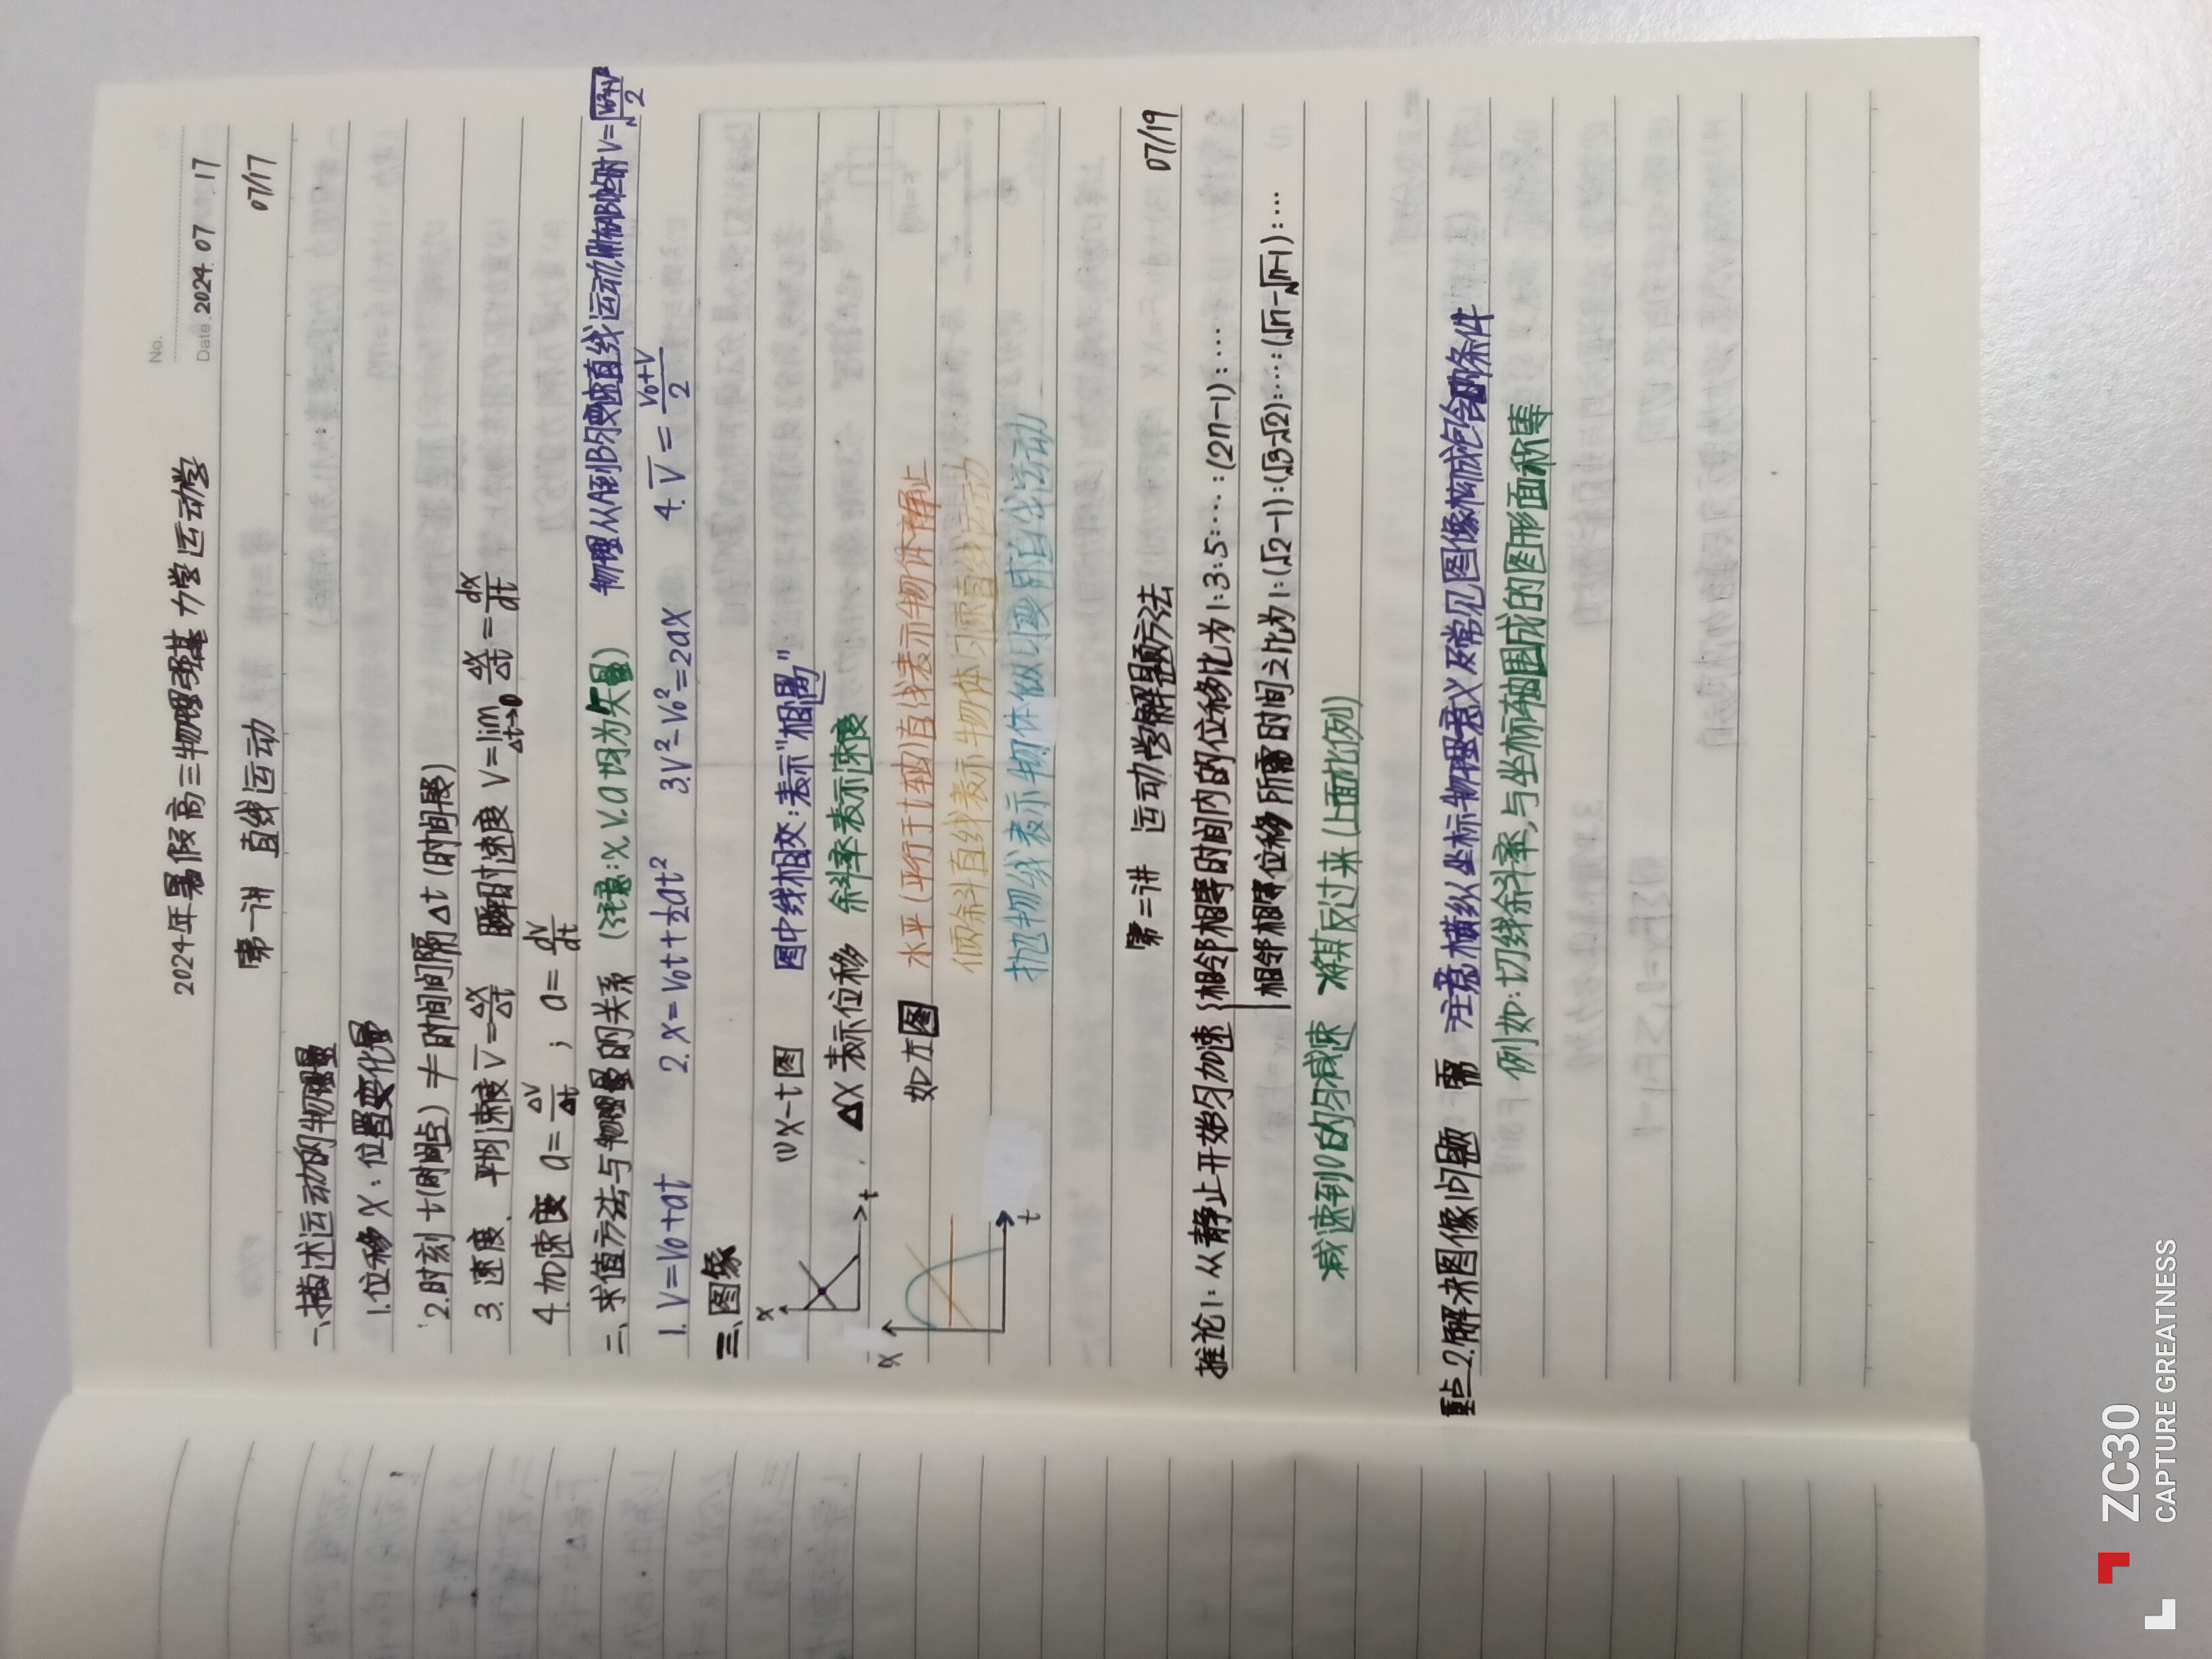 No.
Date 2024. 07 17
2024年暑假高三物理强基 力学 运动学
第一讲 直线运动 07/17
一、描述运动的物理量
1.位移X：位置变化量
2.时刻 t(时间点) ≠ 时间间隔Δt (时间段)
3.速度、平均速度 V̅=ΔX/Δt 瞬时速度 V=lim Δt→0 ΔX/Δt=dX/dt
4.加速度 a=ΔV/Δt ; a=dV/dt
二、求值方法与物理量的关系 (注意:X.V.a均为矢量) 物理从A到B匀变速直线运动,则在AB中点时V=√(V₀²+V²)/2
1.V=V₀+at 2.X=V₀t+½at² 3.V²-V₀²=2aX 4.V̅=(V₀+V)/2
三、图象
(1)X-t图 图中线相交:表示"相遇"
X
t
ΔX表示位移 斜率表示速度
如右图 水平(平行于t轴)直线表示物体静止
倾斜直线表示物体匀速直线运动
抛物线表示物体做匀变速直线运动
X
t
第二讲 运动学解题方法 07/19
推论1:从静止开始匀加速{相邻相等时间内的位移比为1:3:5:…:(2n-1):…
相邻相等位移所需时间之比为1:(√2-1):(√3-√2):…:(√n-√n-1):…
减速到0的匀减速 将其反过来(上面比例)
重点2.解决图像问题 需 注意横纵坐标物理意义及常见图像构成包含的条件
例如:切线斜率,与坐标轴围成的图形面积等
ZC30
CAPTURE GREATNESS